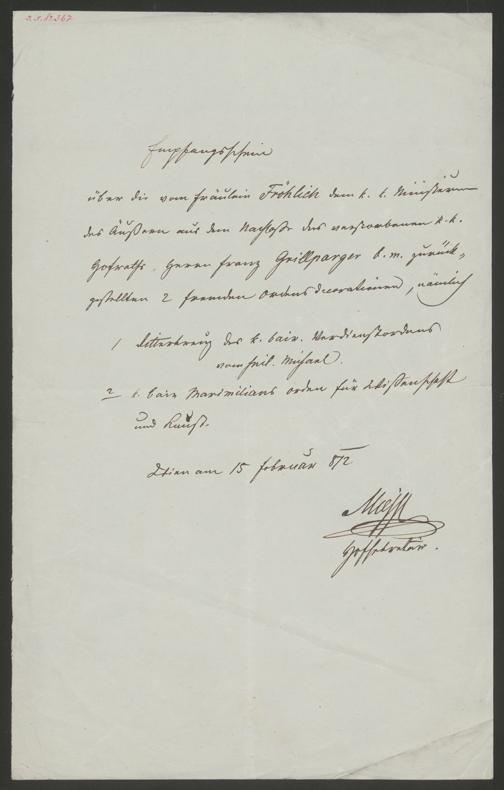 Empfangsschein
über die vom Fräulein Fröhlich dem k. k. Ministerium
des Äußern aus dem Nachlaße des verstorbenen k. k.
Hofraths, Herrn Franz Grillparzer d. m. zurück-
gestellten 2 fremden Ordensdecorationen, nämlich
1 Ritterkreuz des k. bair. Verdienstordens
vom heil. Michael.
2 k. bair Maximilians orden für Wissenschaft
und Kunst.
Wien am 15 Februar 872
Hofsekretär.